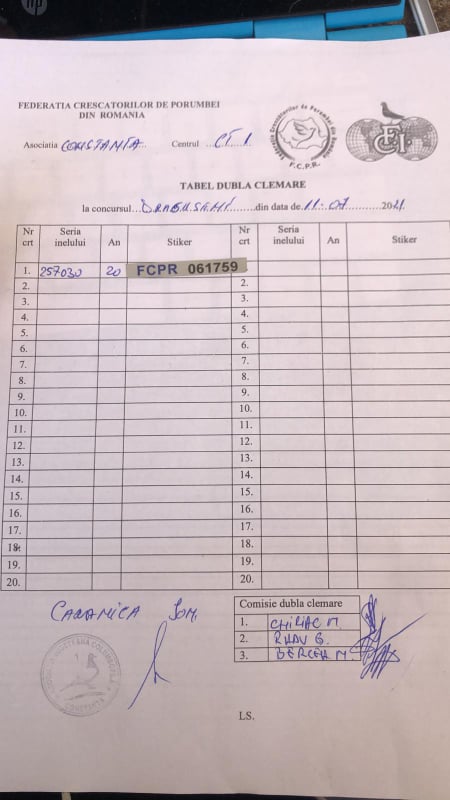 hp
FEDERATIA CRESCATORILOR DE PORUMBEI
DIN ROMANIA
Asociatia CONSTANTA Centrul CT 1
F.C.P.R.
FCI
TABEL DUBLA CLEMARE
la concursul...DRAGUSENI......din data de.11.07.........2021
Nr crt Seria inelului An Stiker Nr crt Seria inelului An Stiker
1. 257030 20 FCPR 061759
2. 2.
3. 3.
4. 4.
5. 5.
6. 6.
7. 7.
8. 8.
9. 9.
10. 10.
11. 11.
12. 12.
13. 13.
14. 14.
15. 15.
16. 16.
17. 17.
18. 18.
19. 19.
20. 20.
CARAMICA ION.
Comisie dubla clemare
1. CHIRIAC M.
2. G.
3. BERCEA M.
CONSTANTA
LS.